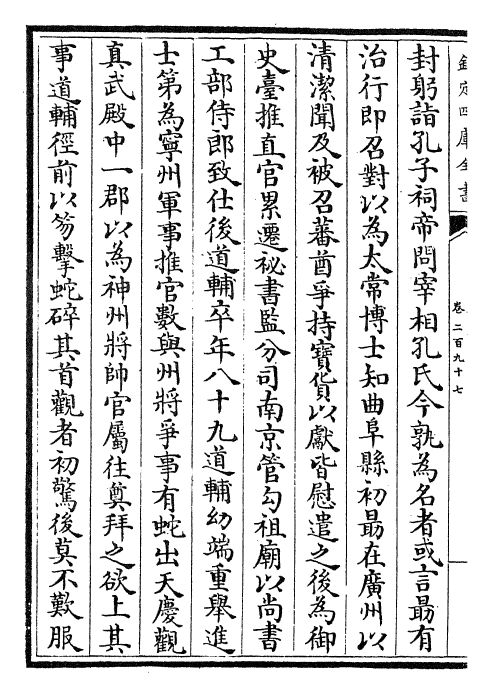 欽定四庫全書
卷二百九十七
封躬詣孔子祠帝問宰相孔氏今孰為名者或言朂有
治行即召對以為太常博士知曲阜縣初朂在廣州以
清潔聞及被召蕃酋爭持寳貨以獻皆慰遣之後為御
史臺推直官累遷祕書監分司南京管勾祖廟以尚書
工部侍郎致仕後道輔卒年八十九道輔幼端重舉進
士第為寧州軍事推官數與州將爭事有蛇出天慶觀
真武殿中一郡以為神州將帥官屬往奠拜之欲上其
事道輔徑前以笏擊蛇碎其首觀者初驚後莫不歎服